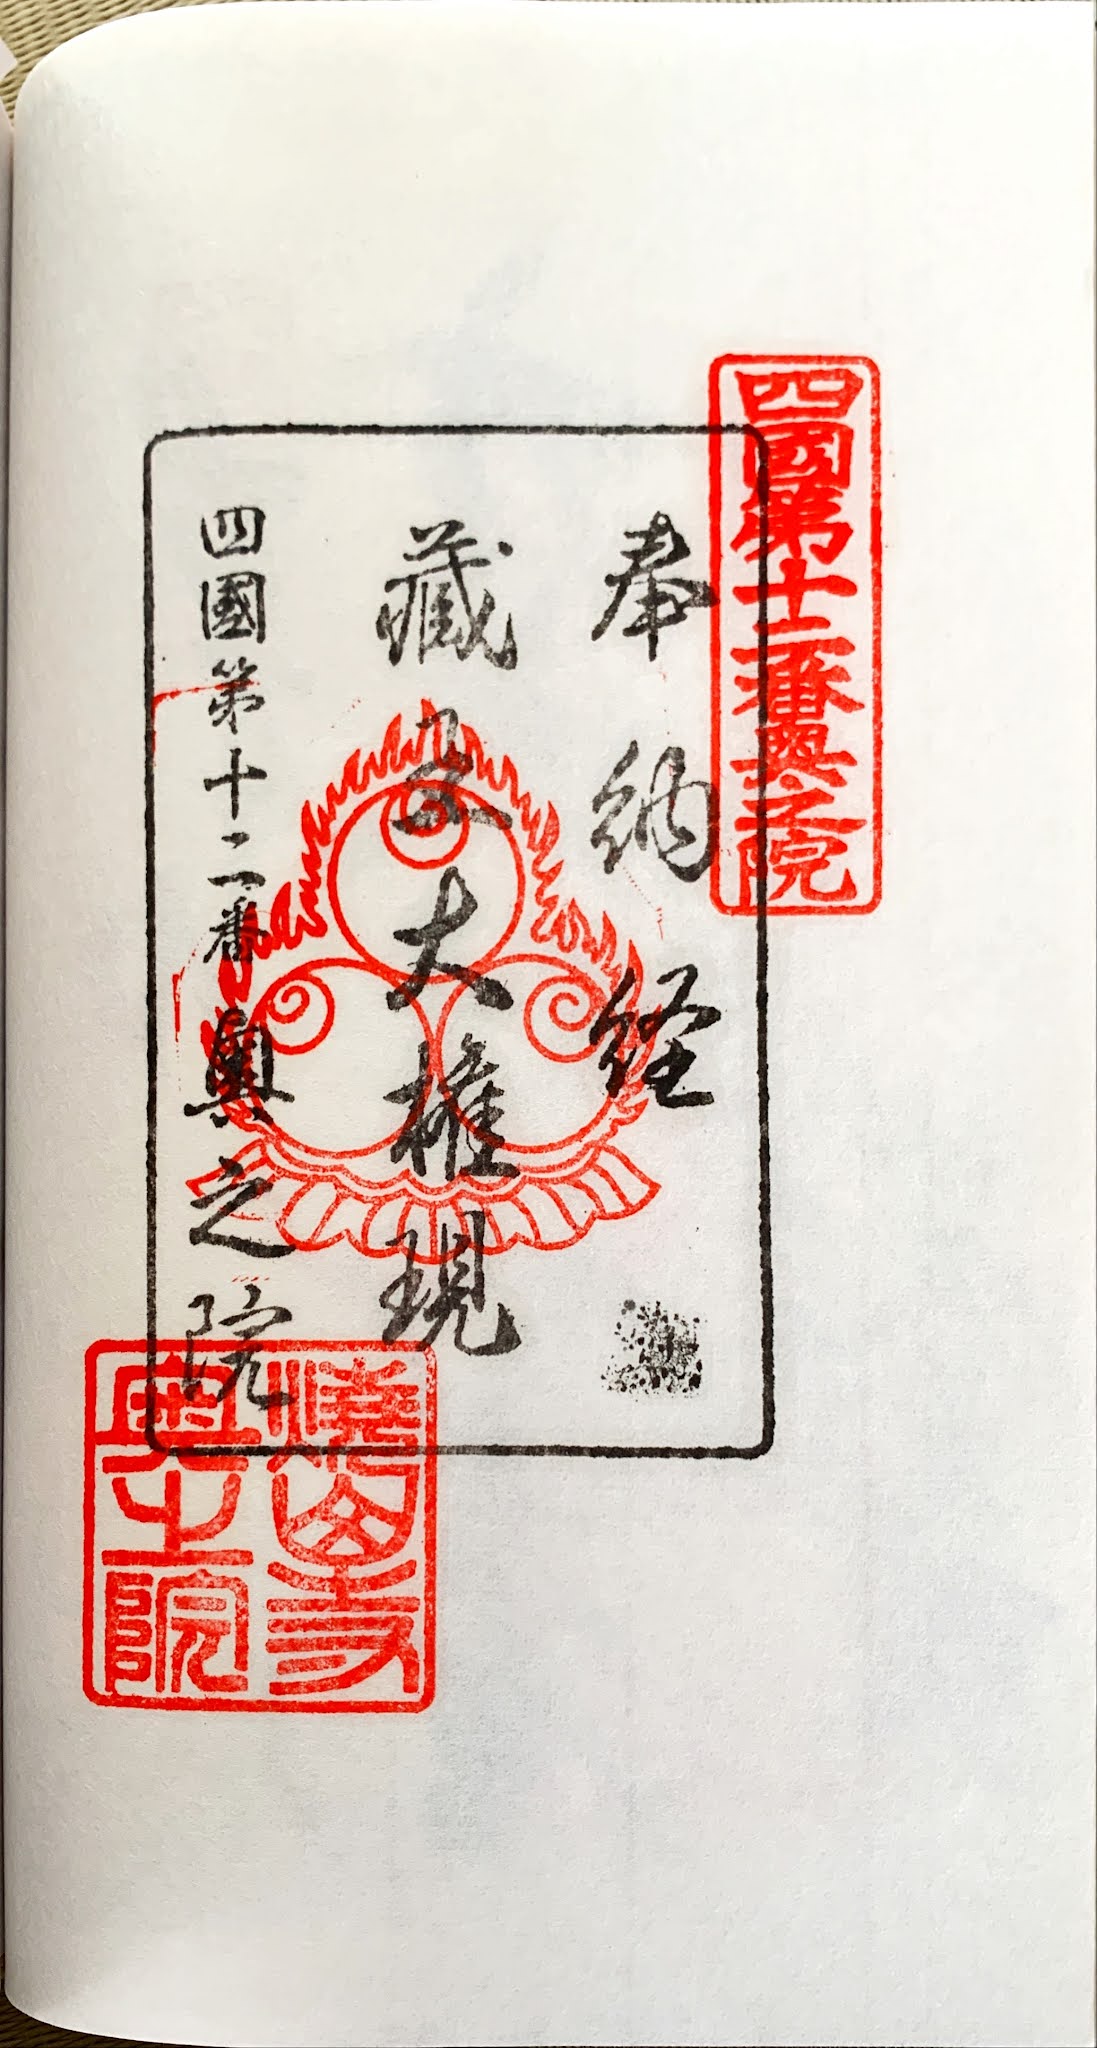 四國第十二番奥之院
奉納経
藏王大権現
四國第十二番奥之院
焼山寺
奥之院